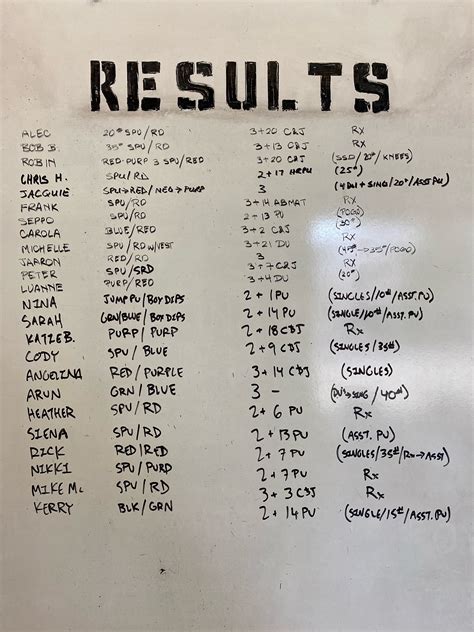 RESULTS
ALEC 20# SPU/RD 3+20 C&J RX
BOB B. 35# SPU/RD 3+13 C&J RX
ROBIN RED-PURP 3 SPU/RED 3+20 C&J (SSD/20#/KNEES)
CHRIS H. SPU/RD 2+17 HRPU (25#)
JACQUIE SPU→RED/NEG→PURP 3 (4DU+SING/20#/ASST PU)
FRANK SPU/RD 3+14 ABMAT RX
SEPPO SPU/RD 2+13 PU (POGO)
CAROLA BLUE/RED 3+2 C&J (30#)
MICHELLE SPU/RD W/VEST 3+21 DU RX
JAARON RED/RD 3 (45#→35#/POGO)
PETER SPU/SRD 3+7 C&J RX
LUANNE PURP/RED 3+4 DU (20#)
NINA JUMP PU/BOX DIPS 2+1 PU (SINGLES/10#/ASST. PU)
SARAH GRN/BLUE/BOX DIPS 2+14 PU (SINGLE/10#/ASST. PU)
KATIE B. PURP/PURP 2+18 C&J Rx
CODY SPU/BLUE 2+9 C&J (SINGLES/35#)
ANGELINA RED/PURPLE 3+14 C&J (SINGLES)
ARUN GRN/BLUE 3 - (DU'S→SING/40#)
HEATHER SPU/RD 2+6 PU Rx
SIENA SPU/RD 2+13 PU (ASST. PU)
RICK RED/RED 2+7 PU (SINGLES/35#/Rx→ASST)
NIKKI SPU/PURP 2+7 PU Rx
MIKE Mc. SPU/RD 3+3 C&J Rx
KERRY BLK/GRN 2+14 PU (SINGLE/15#/ASST. PU)